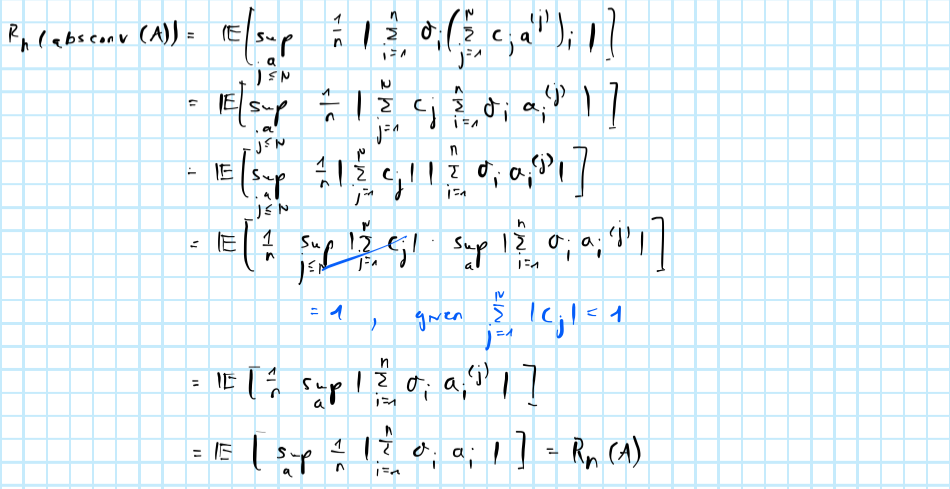 R_n(absconv(A)) = 𝔼[ sup_{a, j≤N} 1/n | Σ_{i=1}^{n} σ_i ( Σ_{j=1}^{N} c_j a^{(j)} )_i | ]
= 𝔼[ sup_{a, j≤N} 1/n | Σ_{j=1}^{N} c_j Σ_{i=1}^{n} σ_i a_i^{(j)} | ]
= 𝔼[ sup_{a, j≤N} 1/n | Σ_{j=1}^{N} c_j | | Σ_{i=1}^{n} σ_i a_i^{(j)} | ]
= 𝔼[ 1/n sup_{j≤N} | Σ_{j=1}^{N} c_j | · sup_a | Σ_{i=1}^{n} σ_i a_i^{(j)} | ]
= 1 , given Σ_{j=1}^{N} |c_j| = 1
= 𝔼[ 1/n sup_a | Σ_{i=1}^{n} σ_i a_i^{(j)} | ]
= 𝔼[ sup_a 1/n | Σ_{i=1}^{n} σ_i a_i | ] = R_n(A)